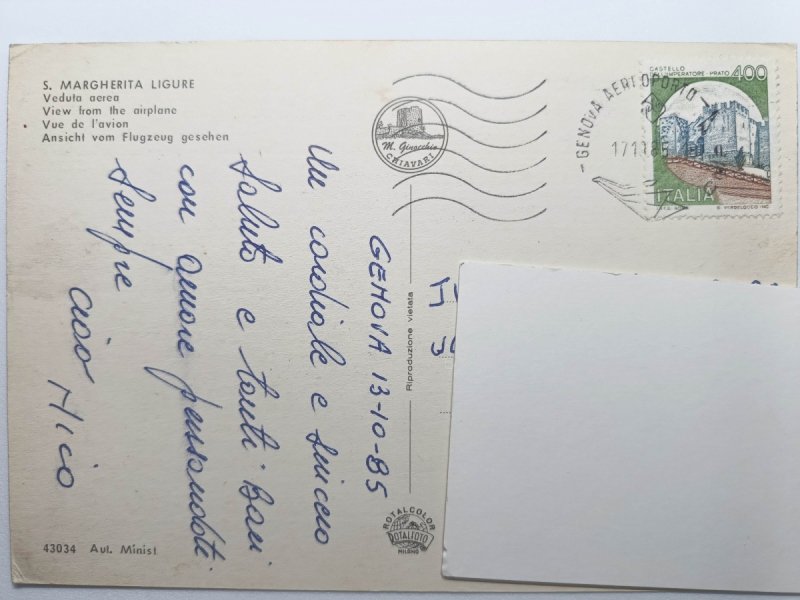 S. MARGHERITA LIGURE
Veduta aerea
View from the airplane
Vue de l'avion
Ansicht vom Flugzeug gesehen
M. Ginocchio
CHIAVARI
GENOVA AEROPORTO
CASTELLO
IMPERATORE - PRATO 400
ITALIA
GENOVA 13-10-85
Un cordiale e sincero
Saluto e tanti Baci
con amore pensandoti
Sempre
ciao Mico
Riproduzione vietata
ROTALCOLOR
ROTALFOTO
MILANO
43034 Aut. Minist